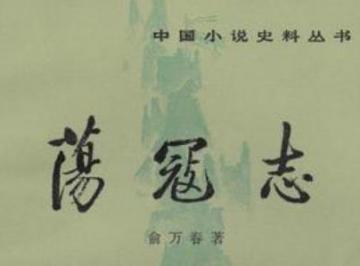 中国小说史料丛书
蕩寇志
俞万春著